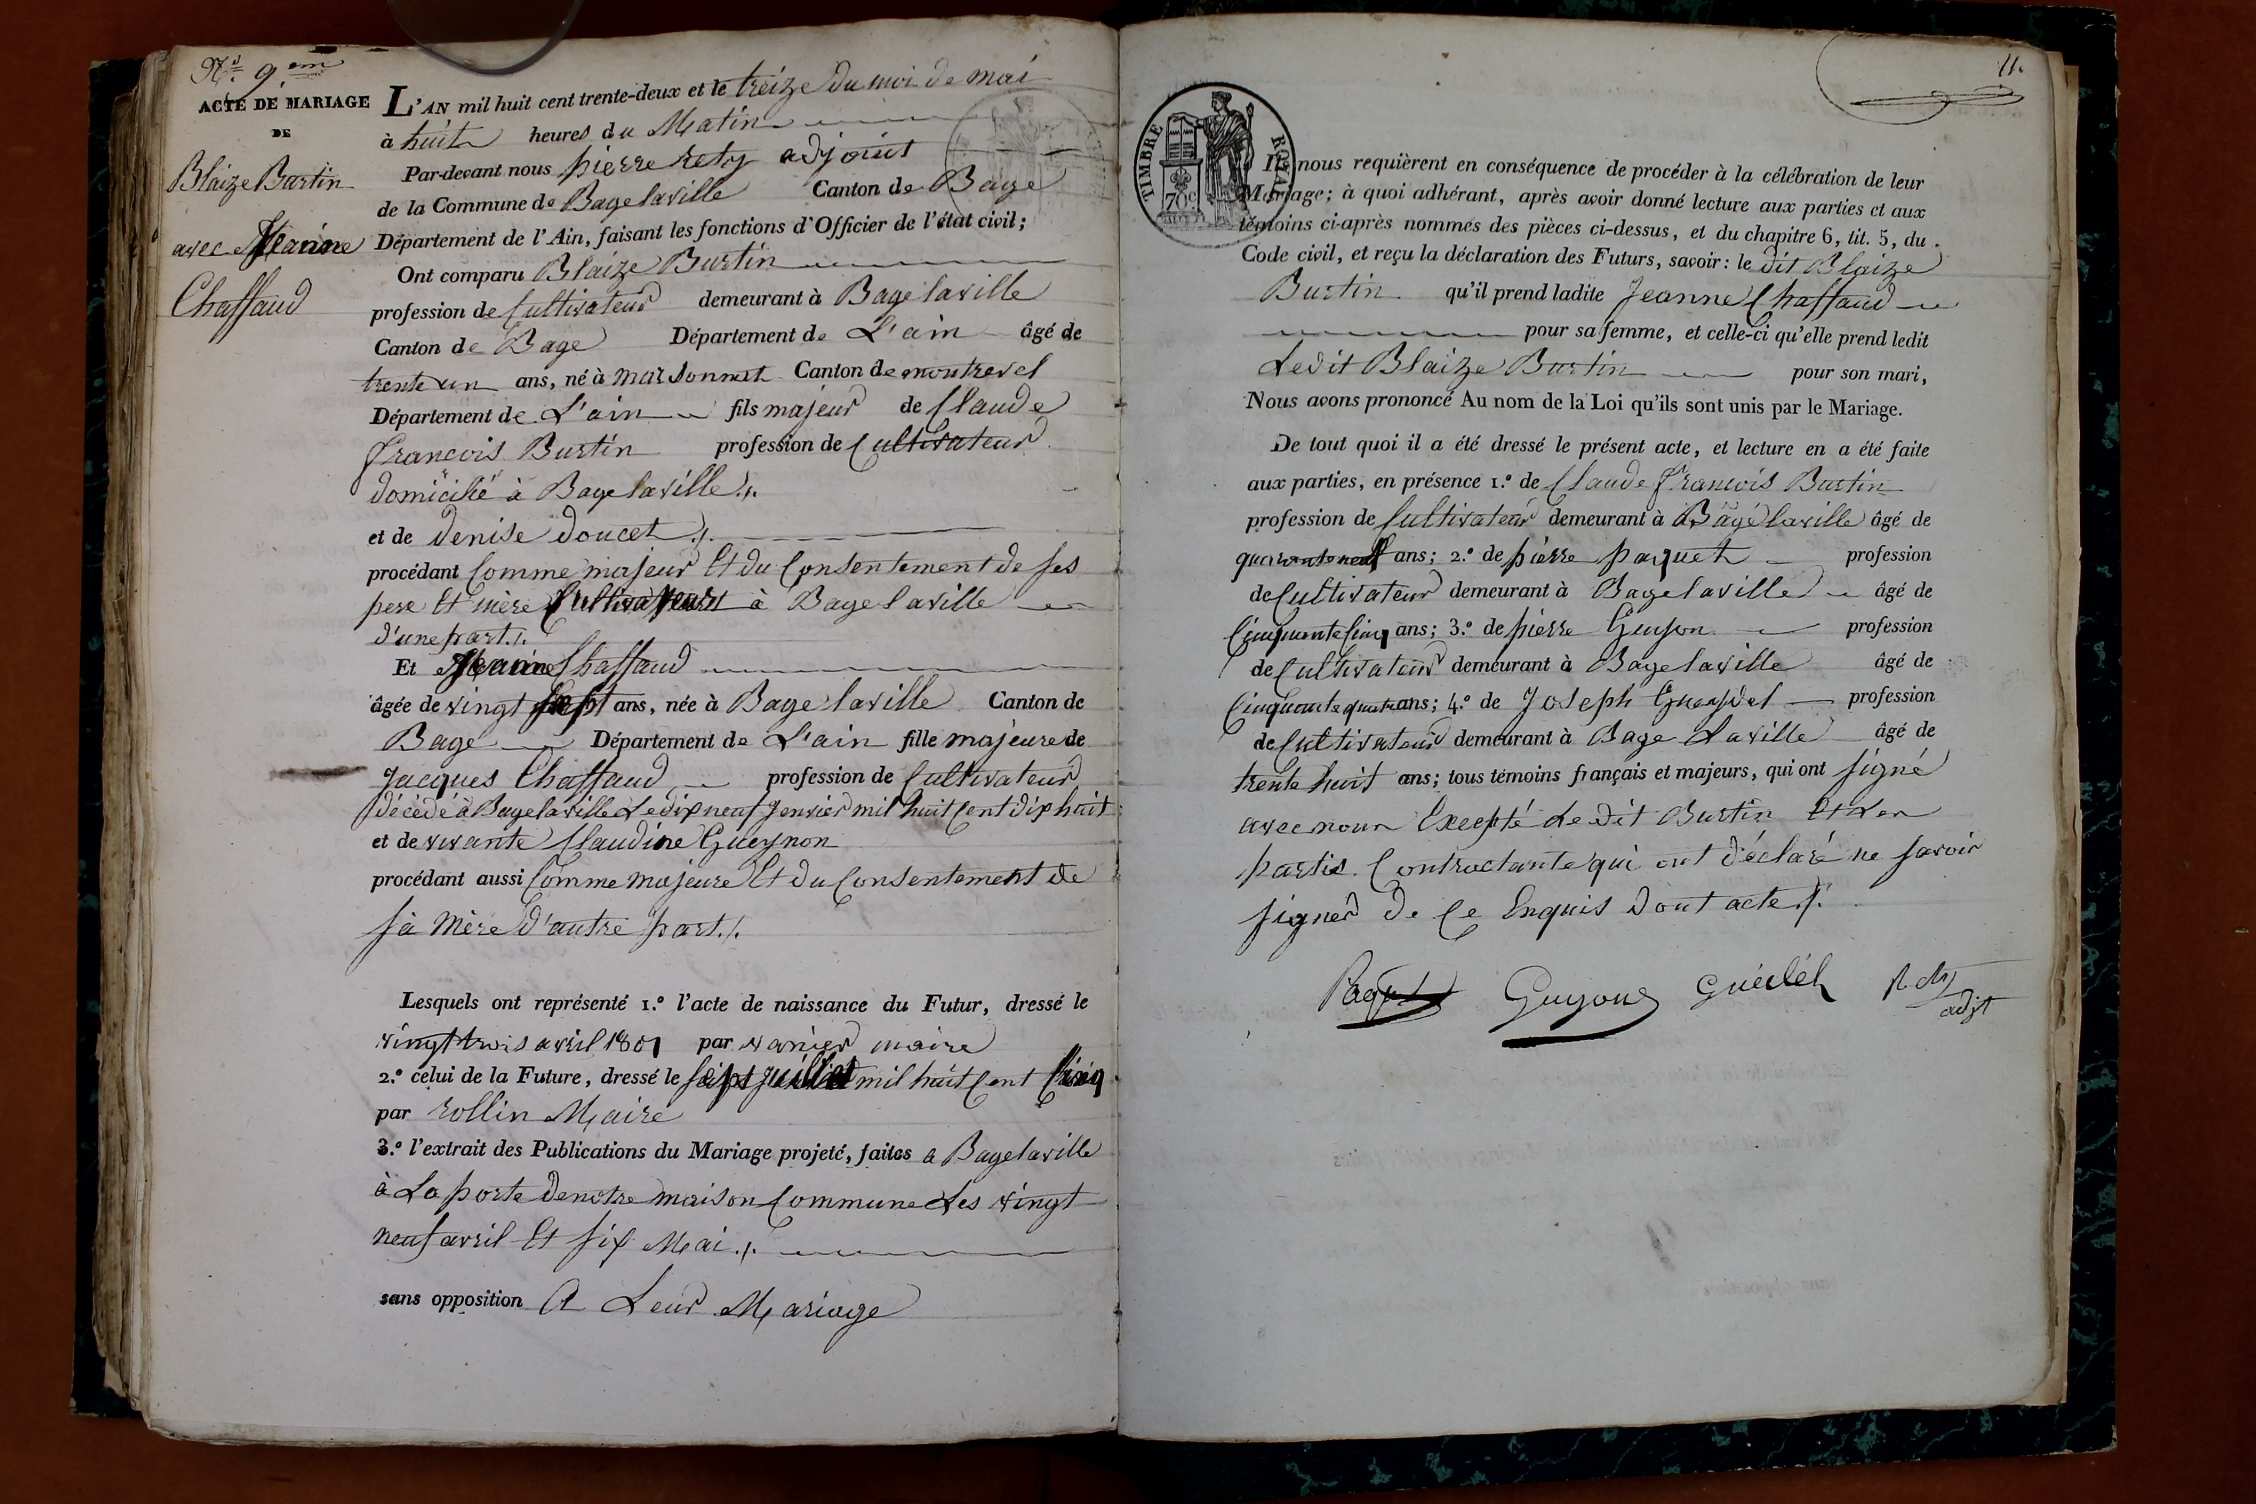 N.º 9.em
ACTE DE MARIAGE
DE
Blaize Burtin
avec Jeanne
Chaffaud
L'AN mil huit cent trente-deux et le treize du moi de mai
à huit heures du Matin
Par-devant nous pierre rety adjoint
de la Commune de Bagelaville Canton de Bage
Département de l'Ain, faisant les fonctions d'Officier de l'état civil;
Ont comparu Blaize Burtin
profession de Cultivateur demeurant à Bagelaville
Canton de Bage Département de L'ain âgé de
trente un ans, né à marsonnat Canton de montrevel
Département de L'ain fils majeur de Claude
francois Burtin profession de Cultivateur
domicilié à Bagelaville ./.
et de denise doucet ./.
procédant Comme majeur Et du Consentement de ses
pere Et mère Cultivateurs à Bagelaville
d'une part ./.
Et Jeanne Chaffaud
âgée de vingt sept ans, née à Bagelaville Canton de
Bage Département de L'ain fille majeure de
Jacques Chaffaud profession de Cultivateur
décédé à Bagelaville Le dix neuf Jenvier mil huit Cent dix huit
et de vivante Claudine Gueynon
procédant aussi Comme majeure Et du Consentement de
sa Mère d'autre part ./.
Lesquels ont représenté 1.º l'acte de naissance du Futur, dressé le
vingt trois avril 1801 par varnier maire
2.º celui de la Future, dressé le sept juillet mil huit Cent Cinq
par rollin Maire
3.º l'extrait des Publications du Mariage projeté, faites a Bagelaville
à La porte de notre maison Commune Les vingt
neuf avril Et six Mai ./.
sans opposition A Leur Mariage
11.
TIMBRE ROYAL
70c
Ils nous requièrent en conséquence de procéder à la célébration de leur
Mariage; à quoi adhérant, après avoir donné lecture aux parties et aux
témoins ci-après nommés des pièces ci-dessus, et du chapitre 6, tit. 5, du
Code civil, et reçu la déclaration des Futurs, savoir: le dit Blaize
Burtin qu'il prend ladite Jeanne Chaffaud
pour sa femme, et celle-ci qu'elle prend ledit
Ledit Blaize Burtin pour son mari,
Nous avons prononcé Au nom de la Loi qu'ils sont unis par le Mariage.
De tout quoi il a été dressé le présent acte, et lecture en a été faite
aux parties, en présence 1.º de Claude francois Burtin
profession de Cultivateur demeurant à Bagélaville âgé de
quarante neuf ans; 2.º de pierre paquet profession
de Cultivateur demeurant à Bagelaville âgé de
Cinquante Cinq ans; 3.º de pierre Guyon profession
de Cultivateur demeurant à Bagelaville âgé de
Cinquante quatre ans; 4.º de Joseph Gueydel profession
de Cultivateur demeurant à Bage Laville âgé de
trente huit ans; tous témoins français et majeurs, qui ont signé
avec nous Excepté Le dit Burtin Et Les
partis Contractante qui ont déclaré ne savoir
signer de Ce Enquis dont acte ./.
Paquet Guyon Guédél Rety
adjt